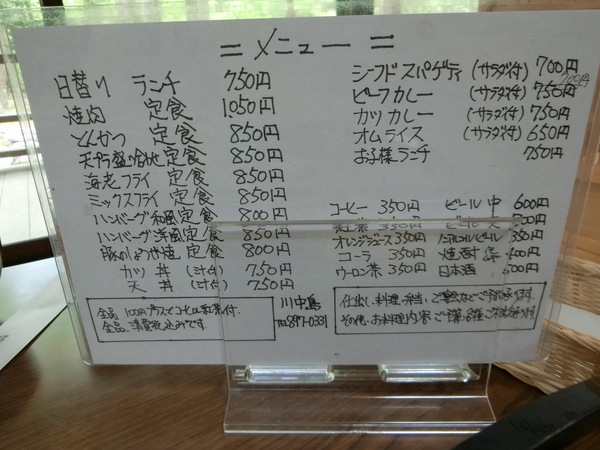 = メニュー =
日替り ランチ 750円
焼肉 定食 1,050円
とんかつ 定食 850円
天ぷら盛合わせ定食 850円
海老フライ 定食 850円
ミックスフライ 定食 850円
ハンバーグ和風定食 800円
ハンバーグ洋風定食 850円
豚のしょうが焼定食 800円
カツ 丼 (汁付) 750円
天 丼 (汁付) 750円
シーフドスパゲティ (サラダ付) 700円
ビーフカレー (サラダ付) 750円
700円
カツ カレー (サラダ付) 750円
オムライス (サラダ付) 650円
お子様ランチ 750円
コーヒー 350円
紅茶 350円
オレンジジュース 350円
コーラ 350円
ウーロン茶 350円
ビール 中 600円
ビール 大
ノンアルコールビール 350円
焼酎
日本酒
全品 100円プラスでコーヒー紅茶付.
全品、消費税込みです.
川中島
TEL 897-0331
仕出し、料理、弁当、ご宴会などご予約承ります.
その他、お料理内容